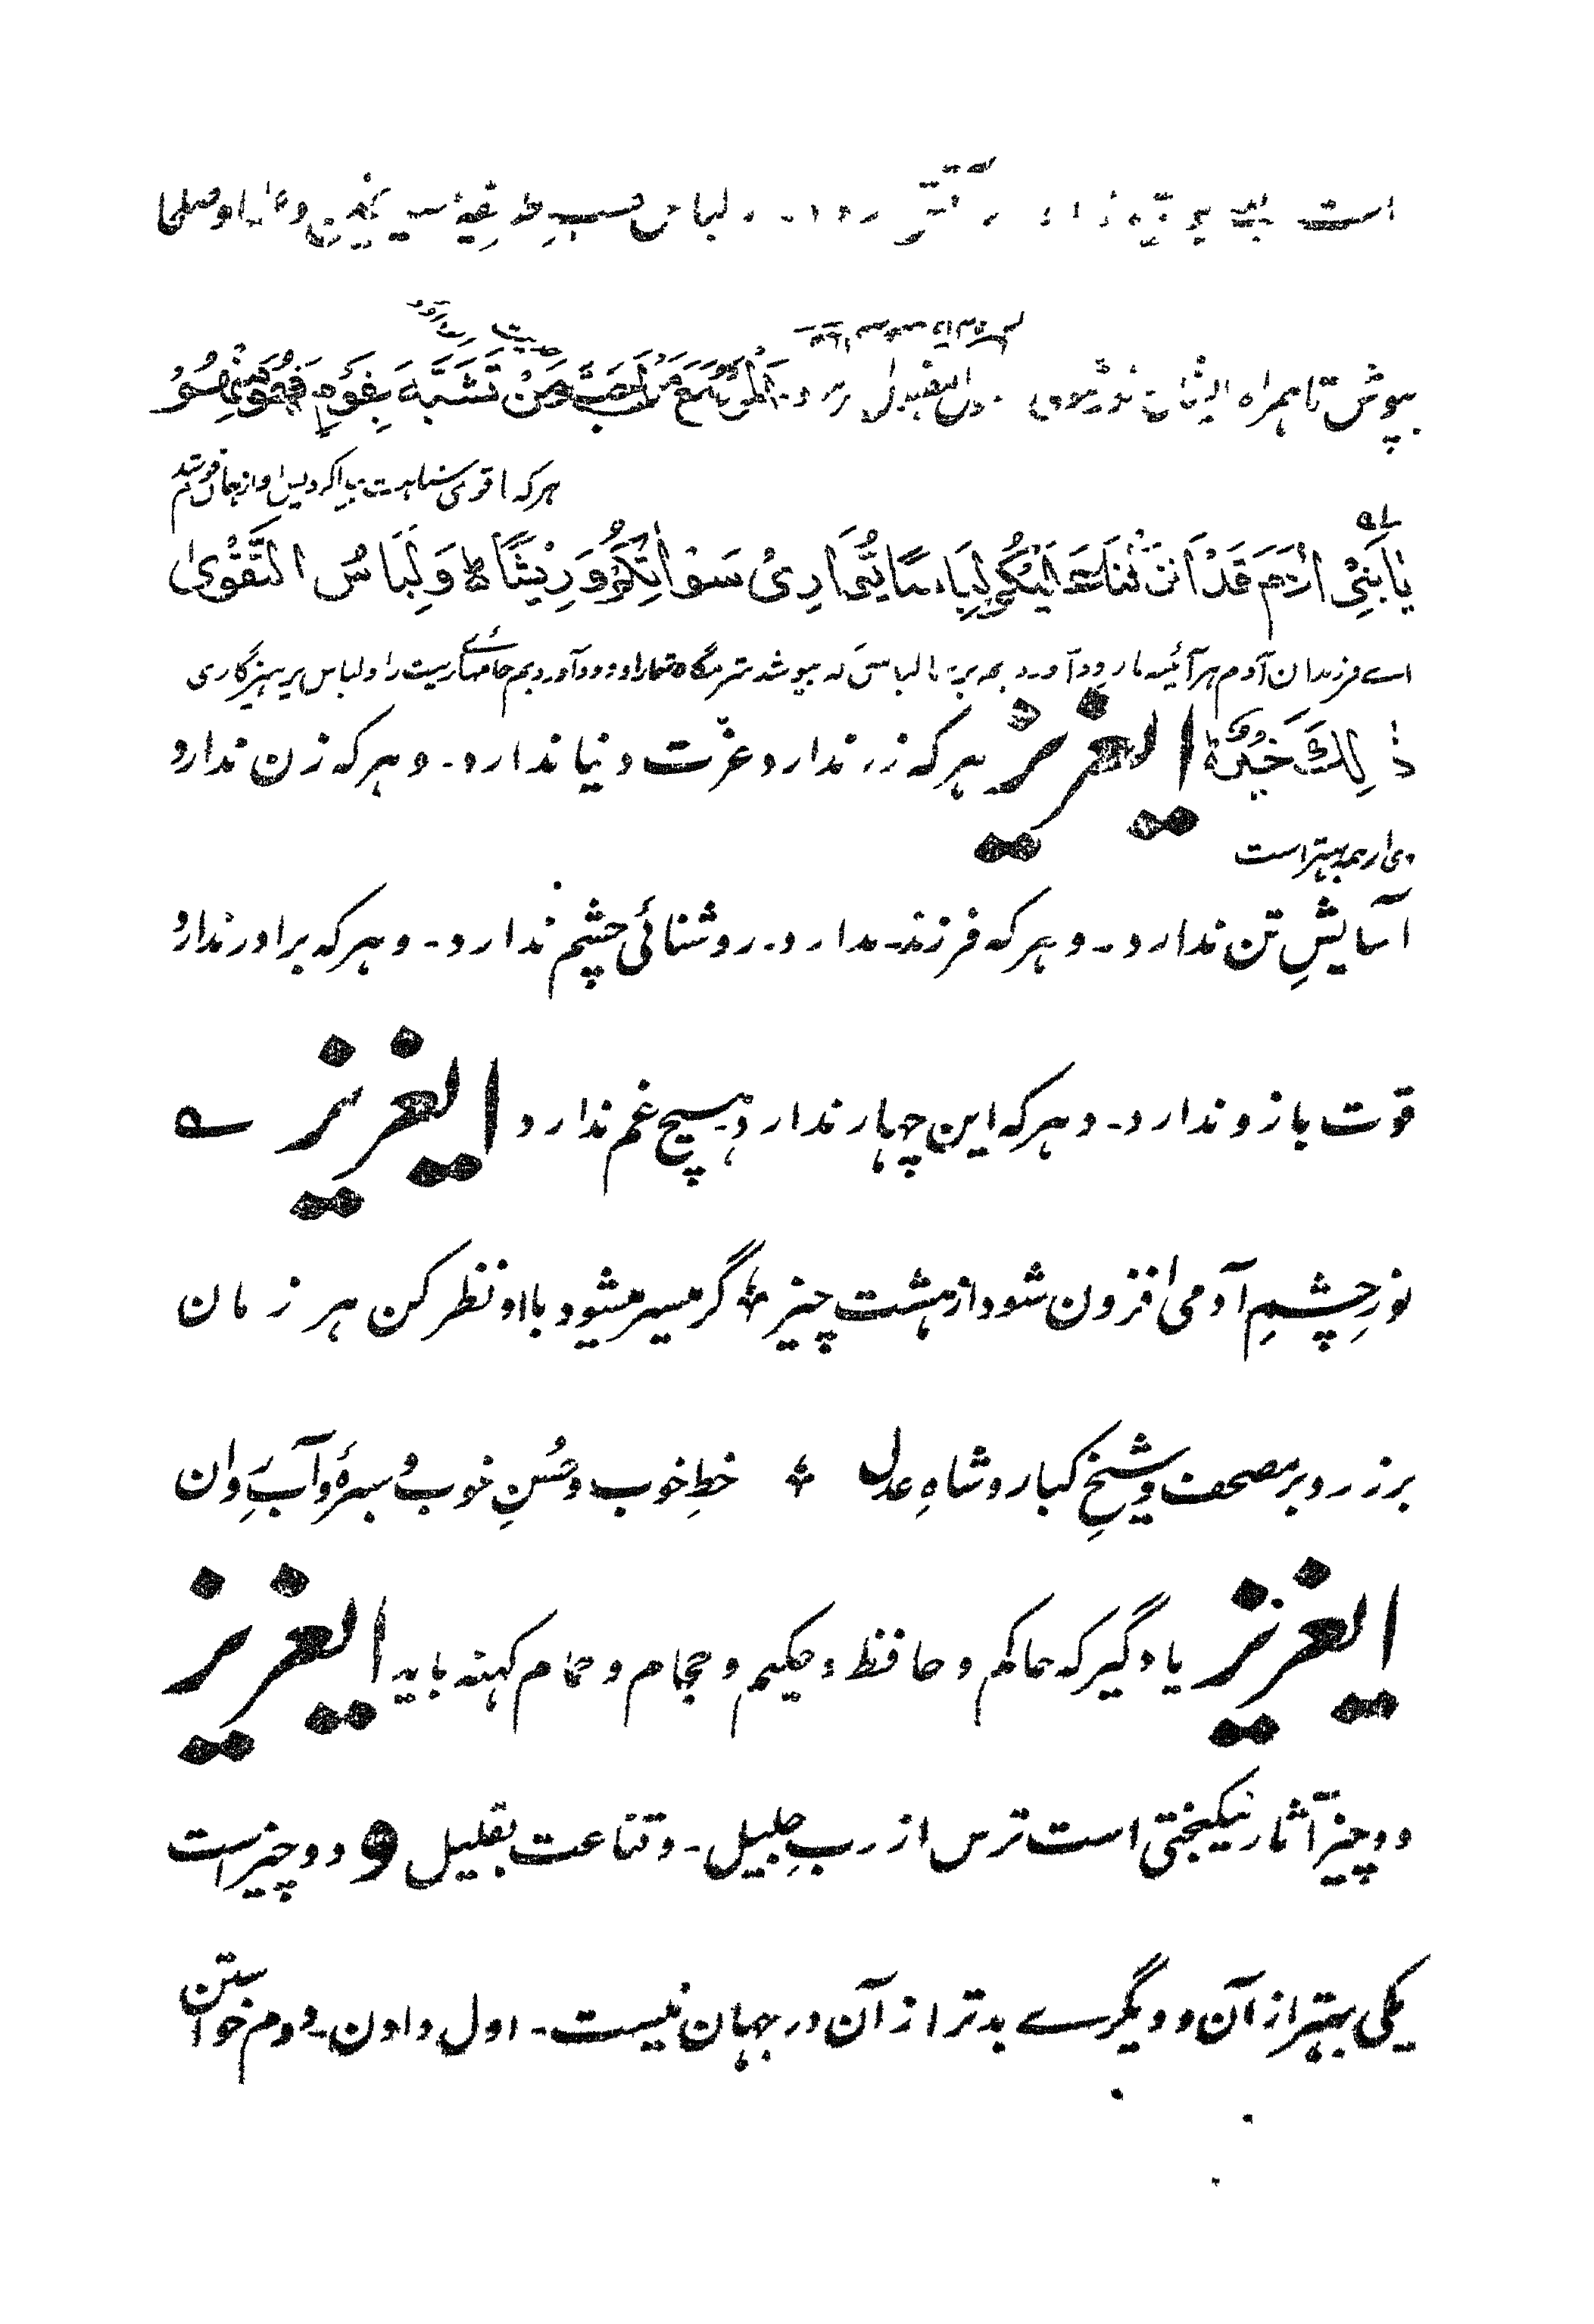 است و لباس بطریقهٔ و صلحا
بپوش تا همراه ایشان اَلْمَرْءُ مَعَ مَنْ اَحَبَّ وَمَنْ تَشَبَّهَ بِقَوْمٍ فَهُوَ مِنْهُمْ
هر که
یٰا بَنِیْ اٰدَمَ قَدْ اَنْزَلْنَا عَلَیْکُمْ لِبَاسًا یُّوَارِیْ سَوْاٰتِکُمْ وَرِیْشًا ط وَلِبَاسُ التَّقْوٰی
اے فرزندان آدم هر آئینه لباسی که بپوشد شرمگاه شمارا و فرود آوردیم جامهائے زینت را و لباس پرهیزگاری
ذٰلِکَ خَیْرٌ ایعزیز هر که زر ندارد عزّت دنیا ندارد ـ و هر که زن ندارد
از همه بهتر است
آسایشِ تن ندارد ـ و هر که فرزند ندارد ـ روشنائی چشم ندارد ـ و هر که برادر ندارد
قوت بازو ندارد ـ و هر که این چهار ندارد هیچ غم ندارد ایعزیز ے
نورِ چشمِ آدمی افزون شود از هشت چیز ؞ گر میسر میشود با او نظر کن هر زمان
بر زر و بر مصحف و شیخِ کبار و شاهِ عدل ؞ خطِ خوب و حُسنِ خوب و سبزهٔ و آبِ روان
ایعزیز یاد گیر که حاکم و حافظ و حکیم و حجام و حمام کهنه باید ایعزیز
دو چیز آثار نیکبختی است ترس از ربِ جلیل ـ و قناعت بقلیل و دو چیز است
یکی بهتر از آن و دیگرے بدتر از آن در جهان نیست ـ اول دادن ـ و دوم خواستن